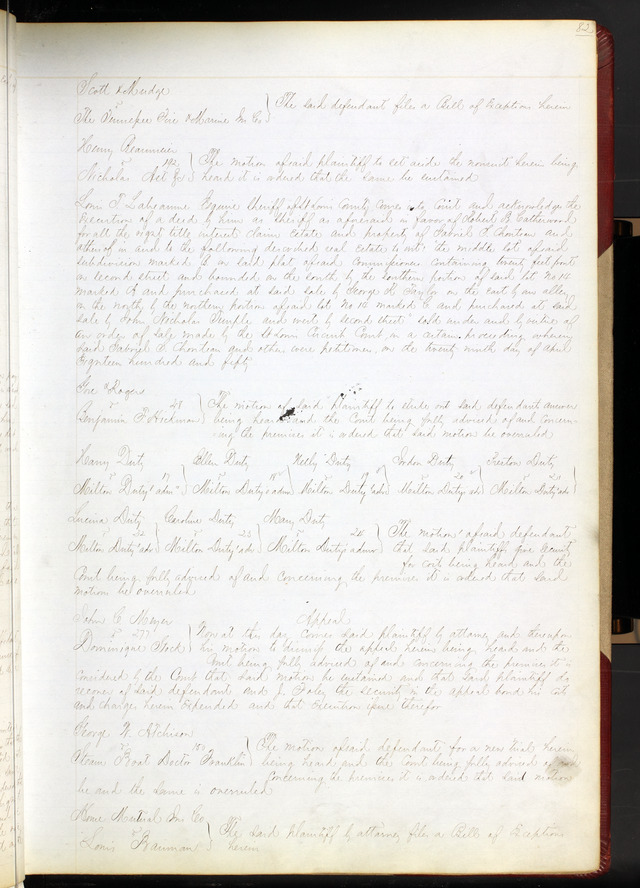 82
Scott & Mudge
vs
The Tennessee Fire & Marine In Co } The said defendant files a Bill of Exceptions herein
Henry Beaumein
vs 192
Nicholas } The motion of said plaintiff to set aside the nonsuit herein being
heard it is ordered that the same be sustained
Louis T. Labeaume Esquire Sheriff of St Louis County comes into Court and acknowledges the
execution of a deed by him as Sheriff as aforesaid in favor of Robert B. Catherwood
for all the right title interest claim estate and property of Gabriel S. Chouteau and
others of in and to the following described real estate to wit: the middle lot of said
subdivision marked in said plat of said Commissioners containing twenty feet front
on second street and bounded on the south by the southern portion of said lot No 14
marked A and purchased at said sale by George R. Taylor on the east by an alley
on the north by the northern portion of said lot No 14 marked and purchased at said
sale by John Nicholas and west by second street sold under and by virtue of
an order of sale made by the St Louis Circuit Court in a certain proceeding wherein
said Gabriel S. Chouteau and others were petitioners on the twenty ninth day of April
Eighteen hundred and fifty
& Rogers
vs 28
Benjamin F Hickman } The motion of said plaintiff to strike out said defendants answer
being heard and the Court being fully advised of and concern-
ing the premises it is ordered that said motion be overruled
Harry Duty Ellen Duty Nelly Duty Jordon Duty Preston Duty
vs 17 vs 18 vs 19 vs 20 vs 21
Milton Dutys adm } Milton Dutys adm } Milton Dutys adm } Milton Dutys adm } Milton Dutys adm }
Lucinda Duty Caroline Duty Mary Duty
vs 22 vs 23 vs 24
Milton Dutys adm } Milton Dutys adm } Milton Dutys admr } The motion of said defendant
that said plaintiffs give security
for costs being heard and the
Court being fully advised of and concerning the premises it is ordered that said
motion be overruled
John C. Meyer Appeal
vs 277
Dominique Stock } Now at this day comes said plaintiff by attorney and thereupon
his motion to dismiss the appeal herein being heard and the
Court being fully advised of and concerning the premises it is
considered by the Court that said motion be sustained and that said plaintiff do
recover of said defendant and J. Foley the security in the appeal bond his costs
and charges herein expended and that execution issue therefor
George W. Atchison
vs
Steam Boat Doctor Franklin } The motion of said defendant for a new trial herein
being heard and the Court being fully advised of and
concerning the premises it is ordered that said motion
be and the same is overruled
Home Mutual In Co
vs
Louis Bauman } The said plaintiff by attorney files a Bill of Exceptions
herein